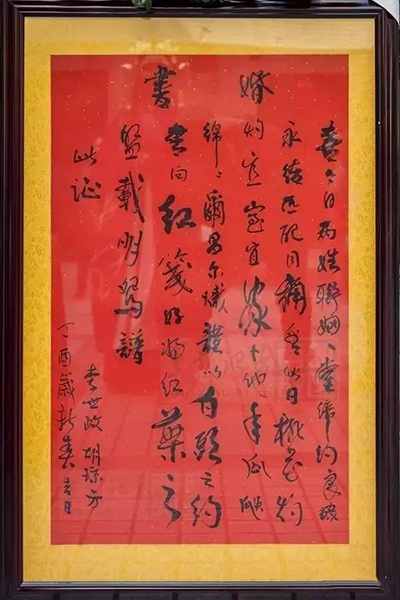 婚書
喜今日两姓聯姻、堂締约良缘
永结匹配同稱看此日桃花灼
灼宜室宜家卜他年瓜瓞
綿、爾昌尔熾謹以白頭之约
書向红箋好将红葉之
盟載明鴛譜
此证
李世政 胡琼方
丁酉歲新春吉日